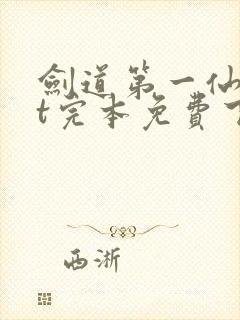 劍道第一仙
t完本免費
西淅